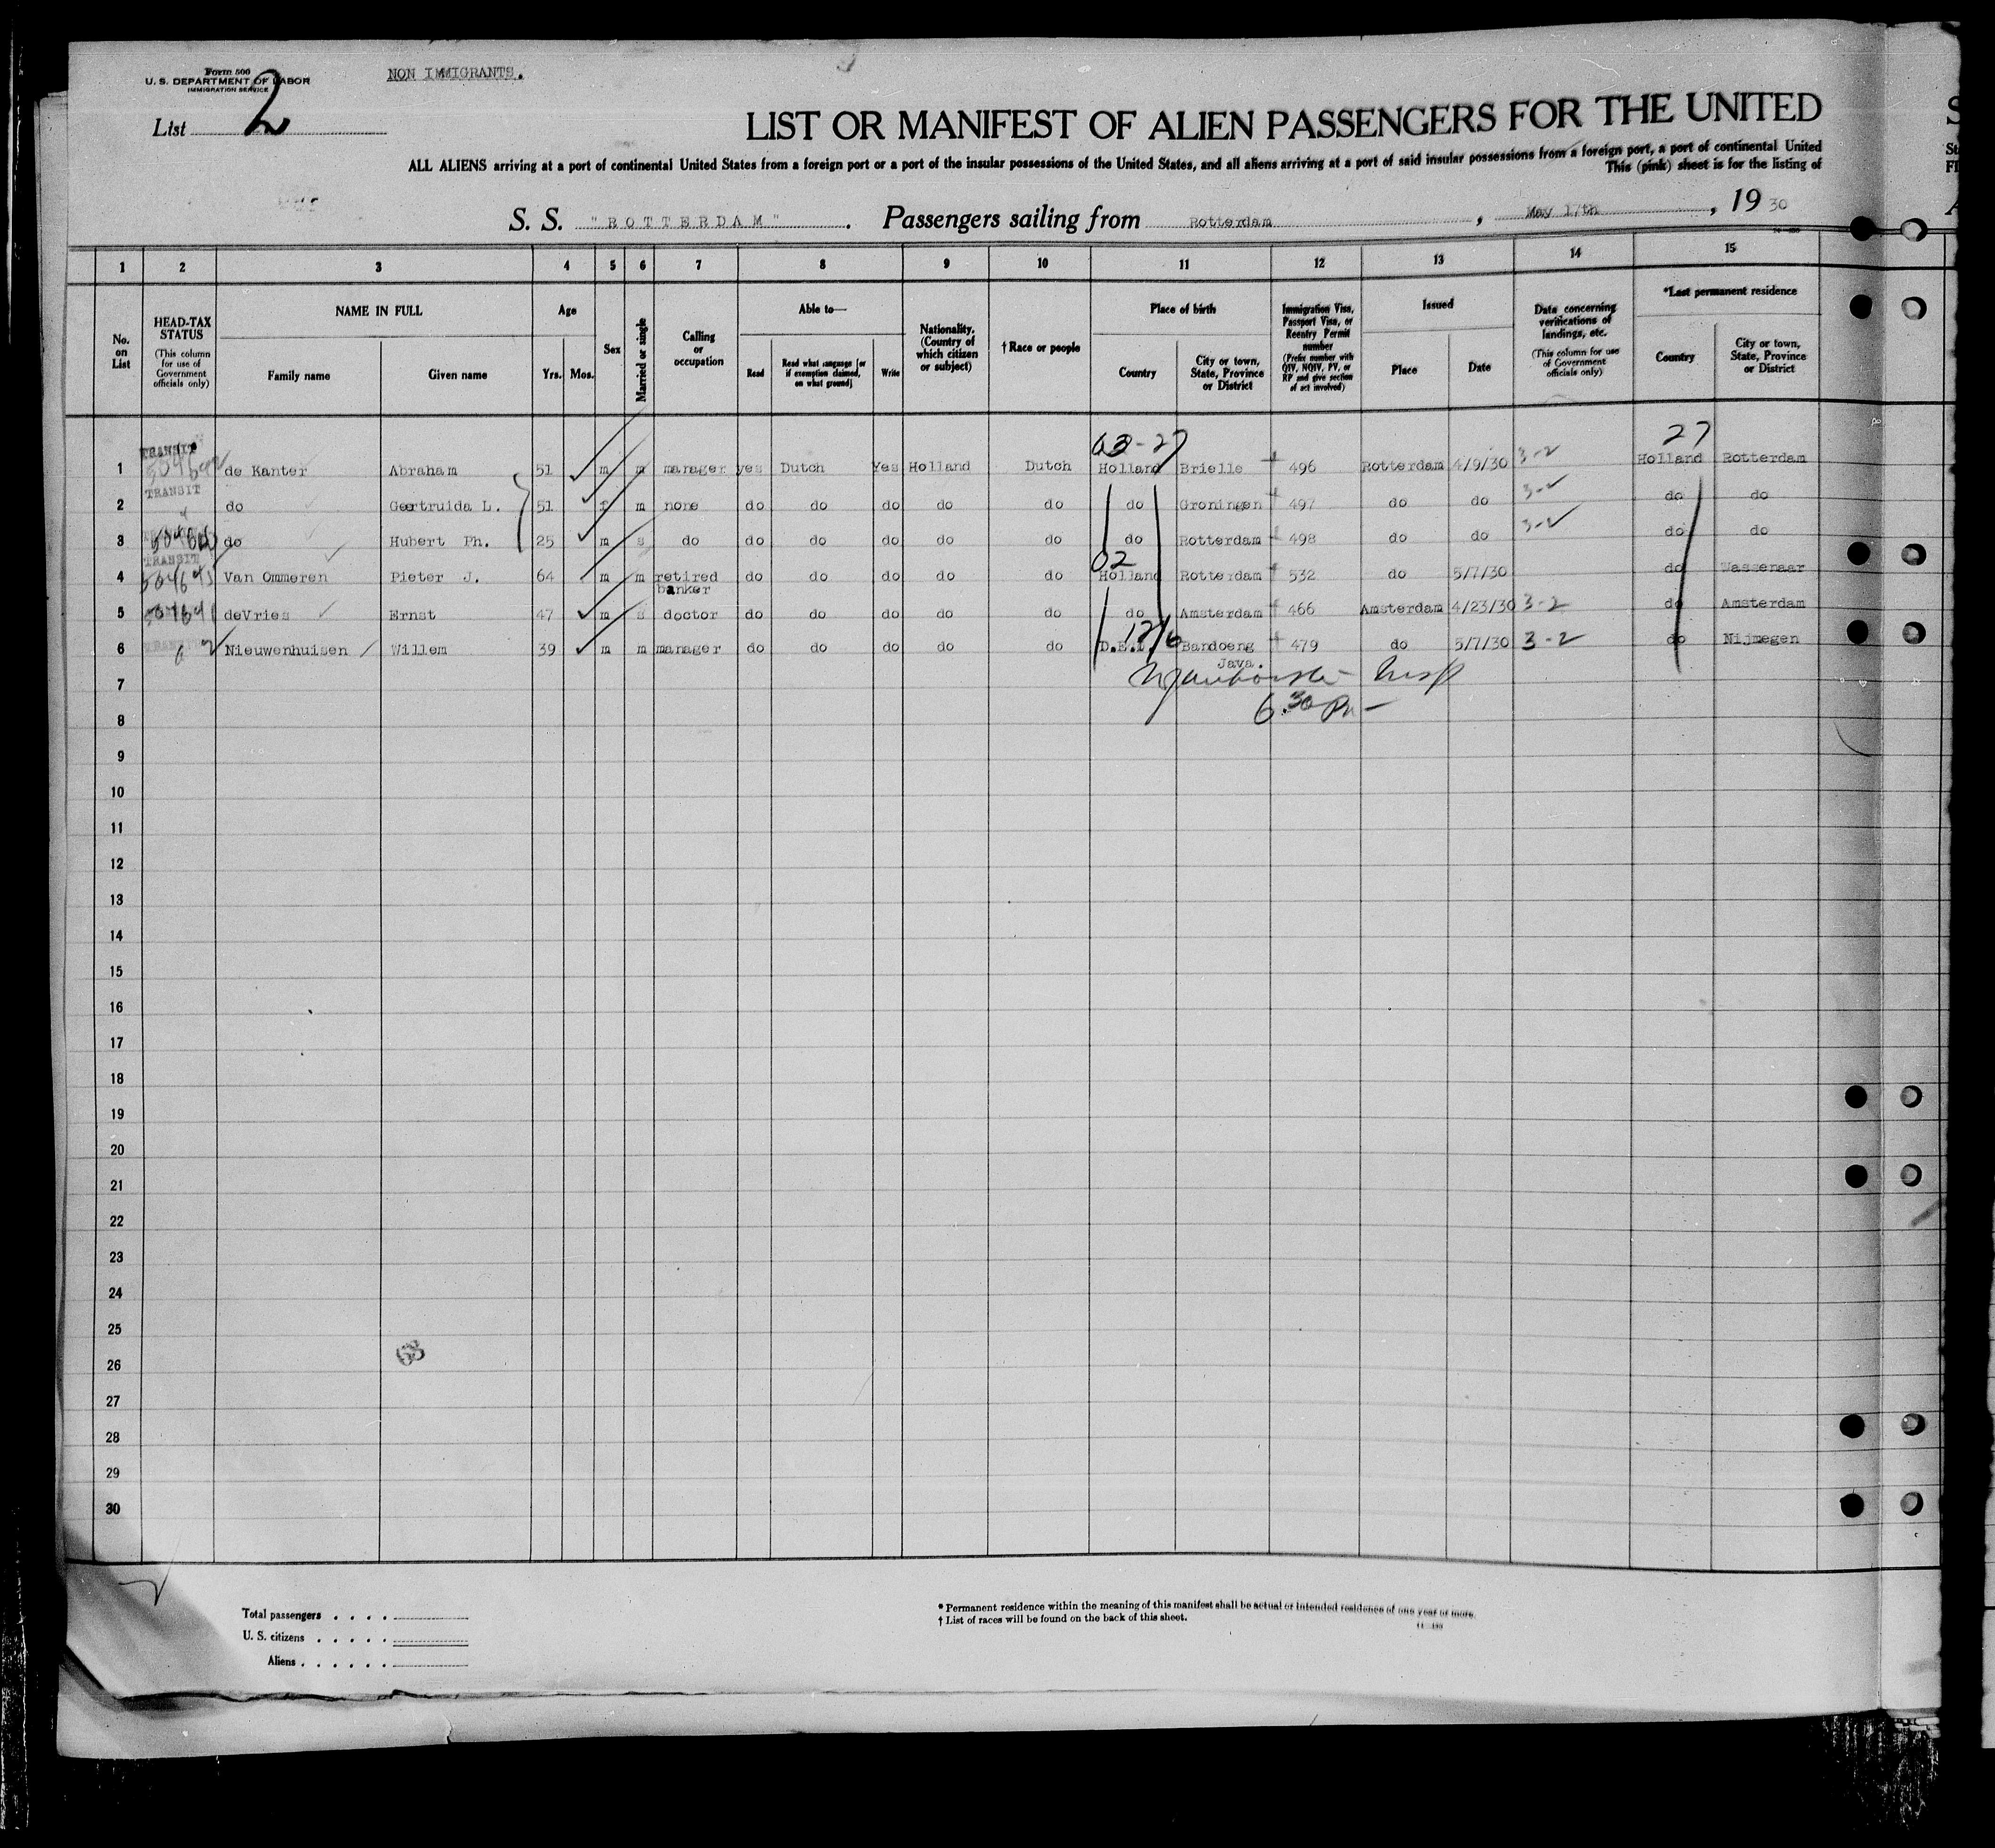 Form 500
U. S. DEPARTMENT OF LABOR
IMMIGRATION SERVICE
NON IMMIGRANTS.
List 2
LIST OR MANIFEST OF ALIEN PASSENGERS FOR THE UNITED
ALL ALIENS arriving at a port of continental United States from a foreign port or a port of the insular possessions of the United States, and all aliens arriving at a port of said insular possessions from a foreign port, a port of continental United
This (pink) sheet is for the listing of
S. S. "ROTTERDAM". Passengers sailing from Rotterdam, May 17th, 19 30
1 2 3 4 5 6 7 8 9 10 11 12 13 14 15
No. on List
HEAD-TAX STATUS
(This column for use of Government officials only)
NAME IN FULL
Family name Given name
Age
Yrs. Mos.
Sex
Married or single
Calling or occupation
Able to—
Read
Read what language [or if exemption claimed, on what ground]
Write
Nationality. (Country of which citizen or subject)
†Race or people
Place of birth
Country
City or town, State, Province or District
Immigration Visa, Passport Visa, or Reentry Permit number
(Prefix number with QIV, NQIV, PV, or RP and give section of act involved)
Issued
Place Date
Data concerning verifications of landings, etc.
(This column for use of Government officials only)
*Last permanent residence
Country
City or town, State, Province or District
27
1 TRANSIT de Kanter Abraham 51 m m manager yes Dutch Yes Holland Dutch Holland Brielle 496 Rotterdam 4/9/30 3-2 Holland Rotterdam
2 TRANSIT do Geertruida L. 51 f m none do do do do do do Groningen 497 do do 3-2 do do
3 do Hubert Ph. 25 m s do do do do do do do Rotterdam 498 do do 3-2 do do
02
4 TRANSIT Van Ommeren Pieter J. 64 m m retired banker do do do do do Holland Rotterdam 532 do 5/7/30 do Wassenaar
5 deVries Ernst 47 m s doctor do do do do do do Amsterdam 466 Amsterdam 4/23/30 3-2 do Amsterdam
6 Nieuwenhuisen Willem 39 m m manager do do do do do D.E.I. Bandoeng Java. 479 do 5/7/30 3-2 do Nijmegen
7
8 6.30 Pm
9
10
11
12
13
14
15
16
17
18
19
20
21
22
23
24
25
26
27
28
29
30
Total passengers . . . .
U. S. citizens . . . . .
Aliens . . . . . .
* Permanent residence within the meaning of this manifest shall be actual or intended residence of one year or more.
† List of races will be found on the back of this sheet.